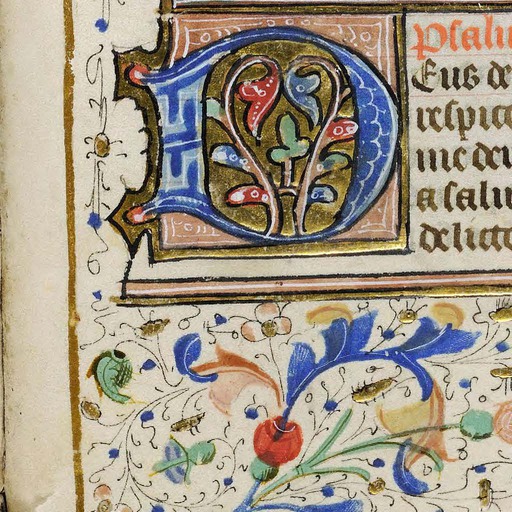 Psalm
Deus de
respice
me deu
a salu
delicto